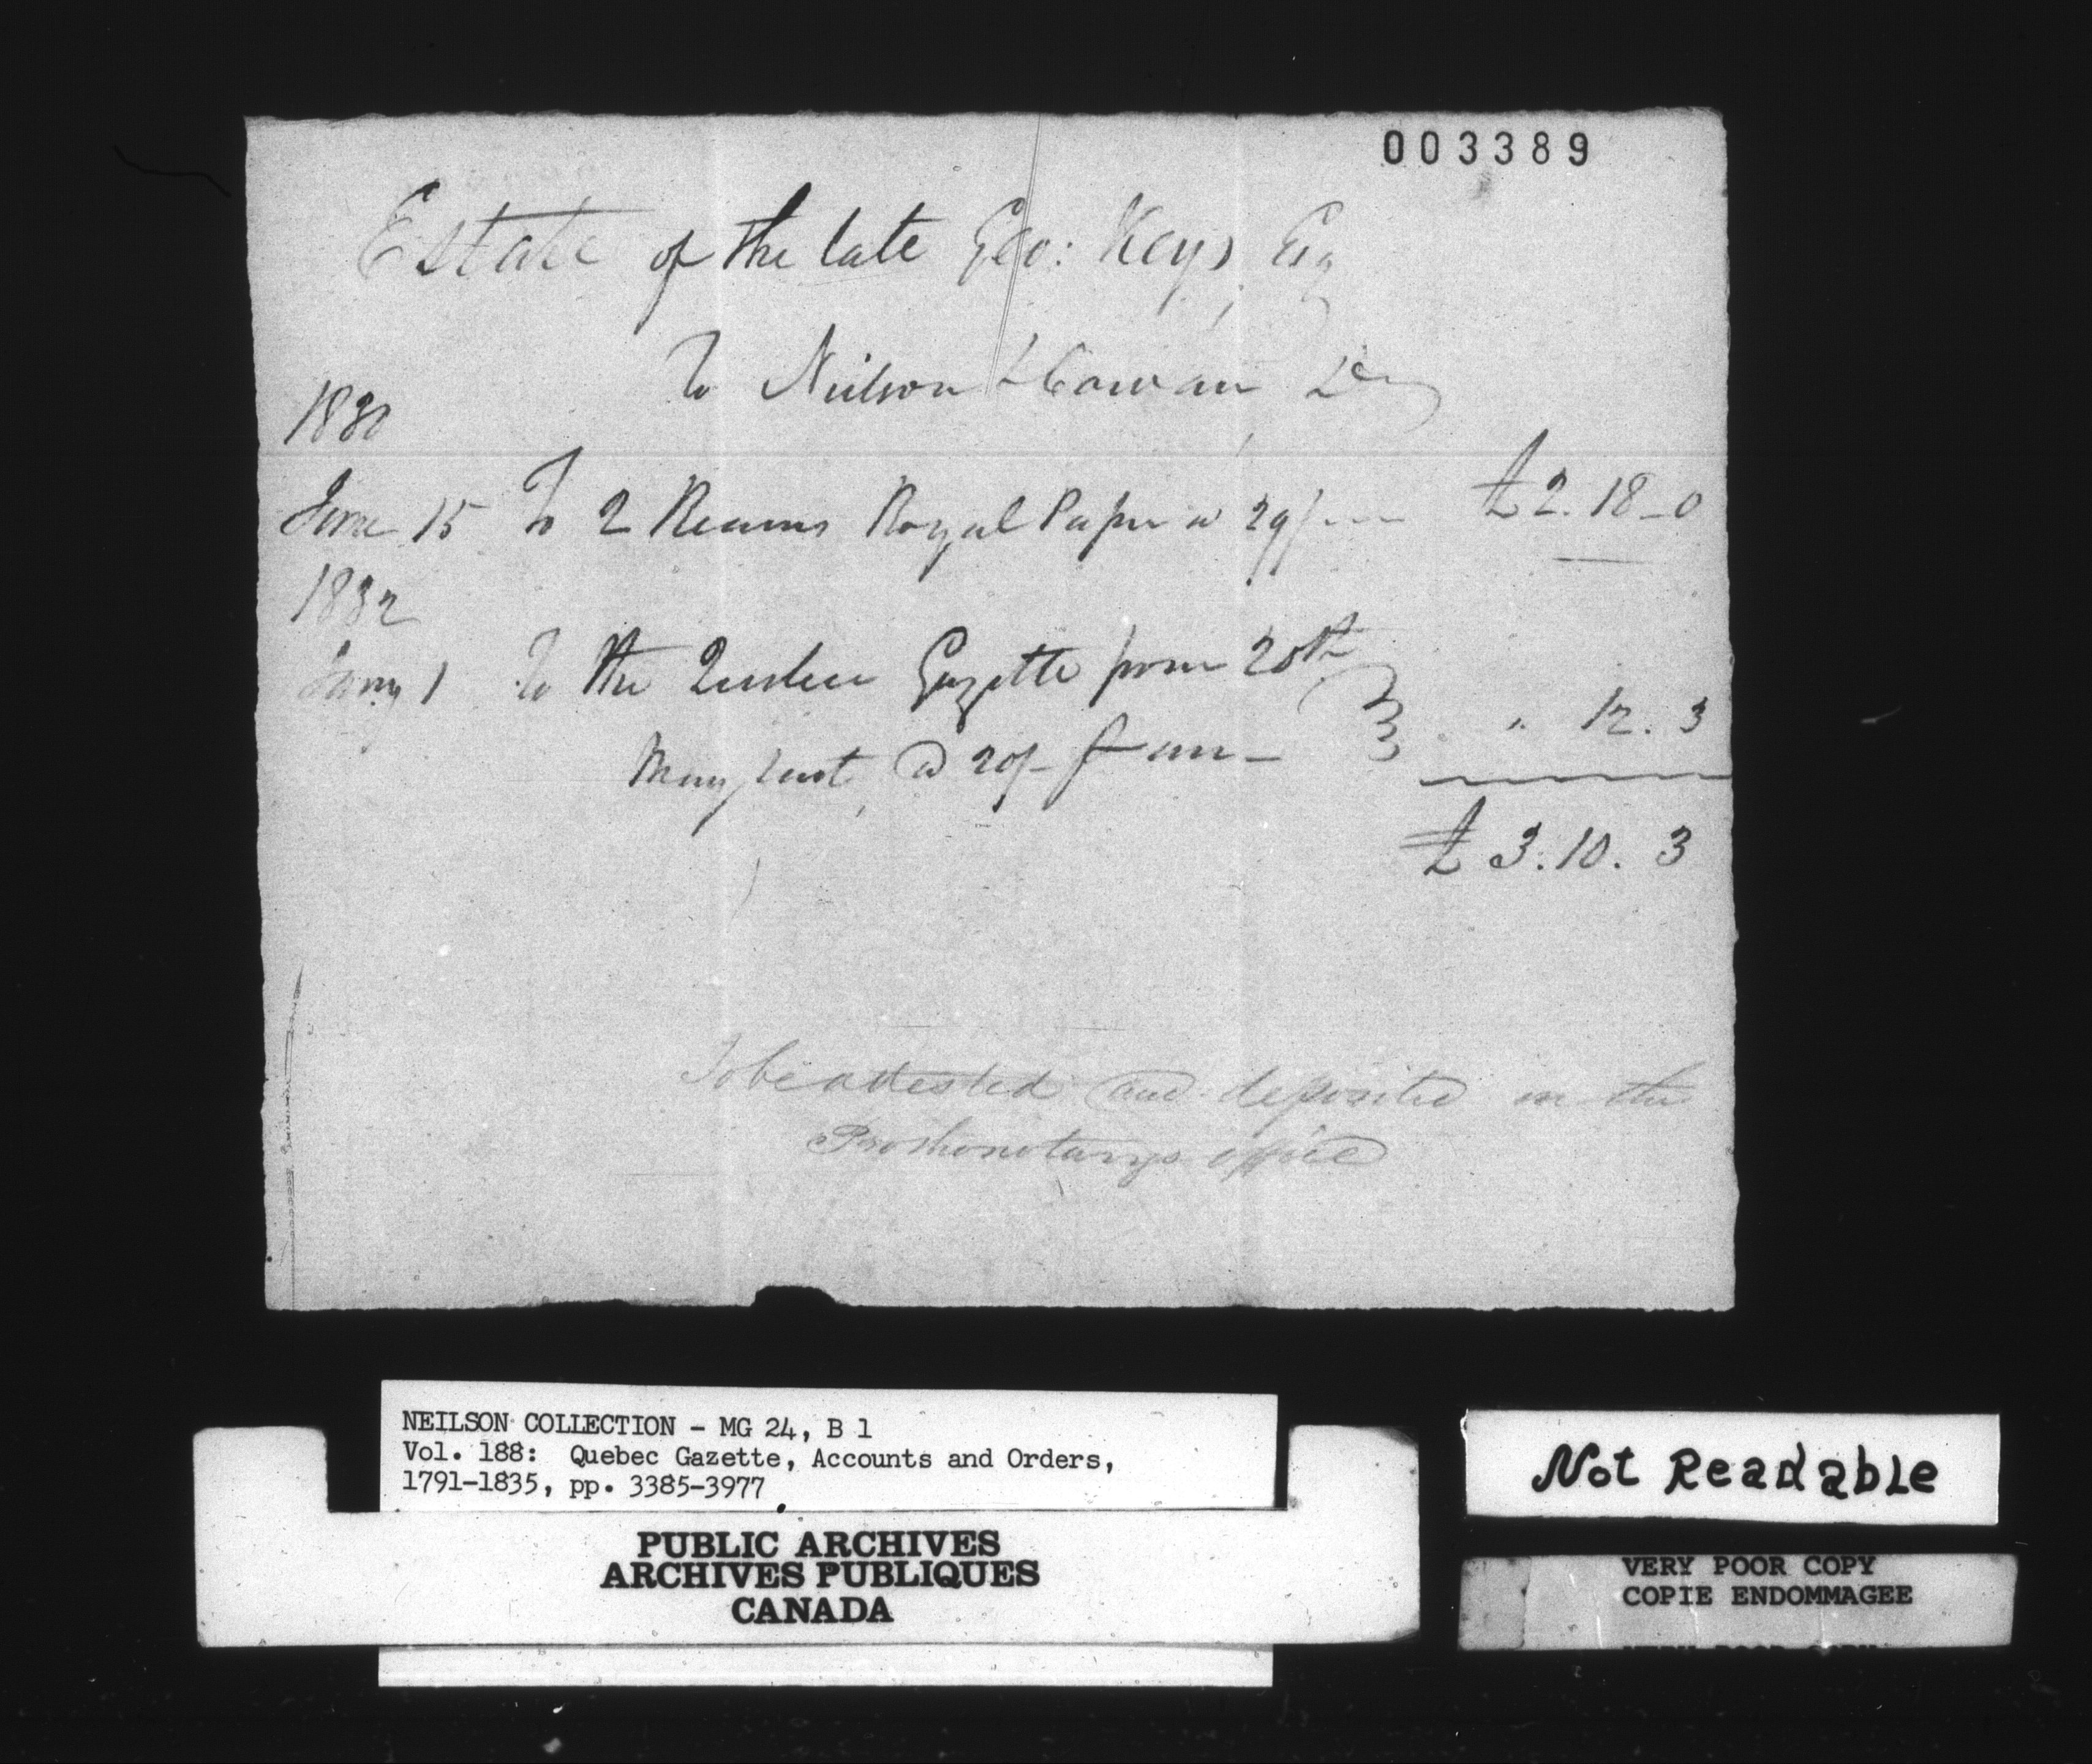 003389
Estate of the late Geo: Keys Esq
To Neilson & Cowan Dr
1830
June 15 To 2 Reams Royal Paper a 29/ £2.18_0
1832
Jany 1 To the Quebec Gazette from 20th
May last @ 20/- P ann_ " 12.3
£3.10.3
To be attested and deposited in the
Prothonotarys office
NEILSON COLLECTION - MG 24, B 1
Vol. 188: Quebec Gazette, Accounts and Orders,
1791-1835, pp. 3385-3977
PUBLIC ARCHIVES
ARCHIVES PUBLIQUES
CANADA
Not Readable
VERY POOR COPY
COPIE ENDOMMAGEE